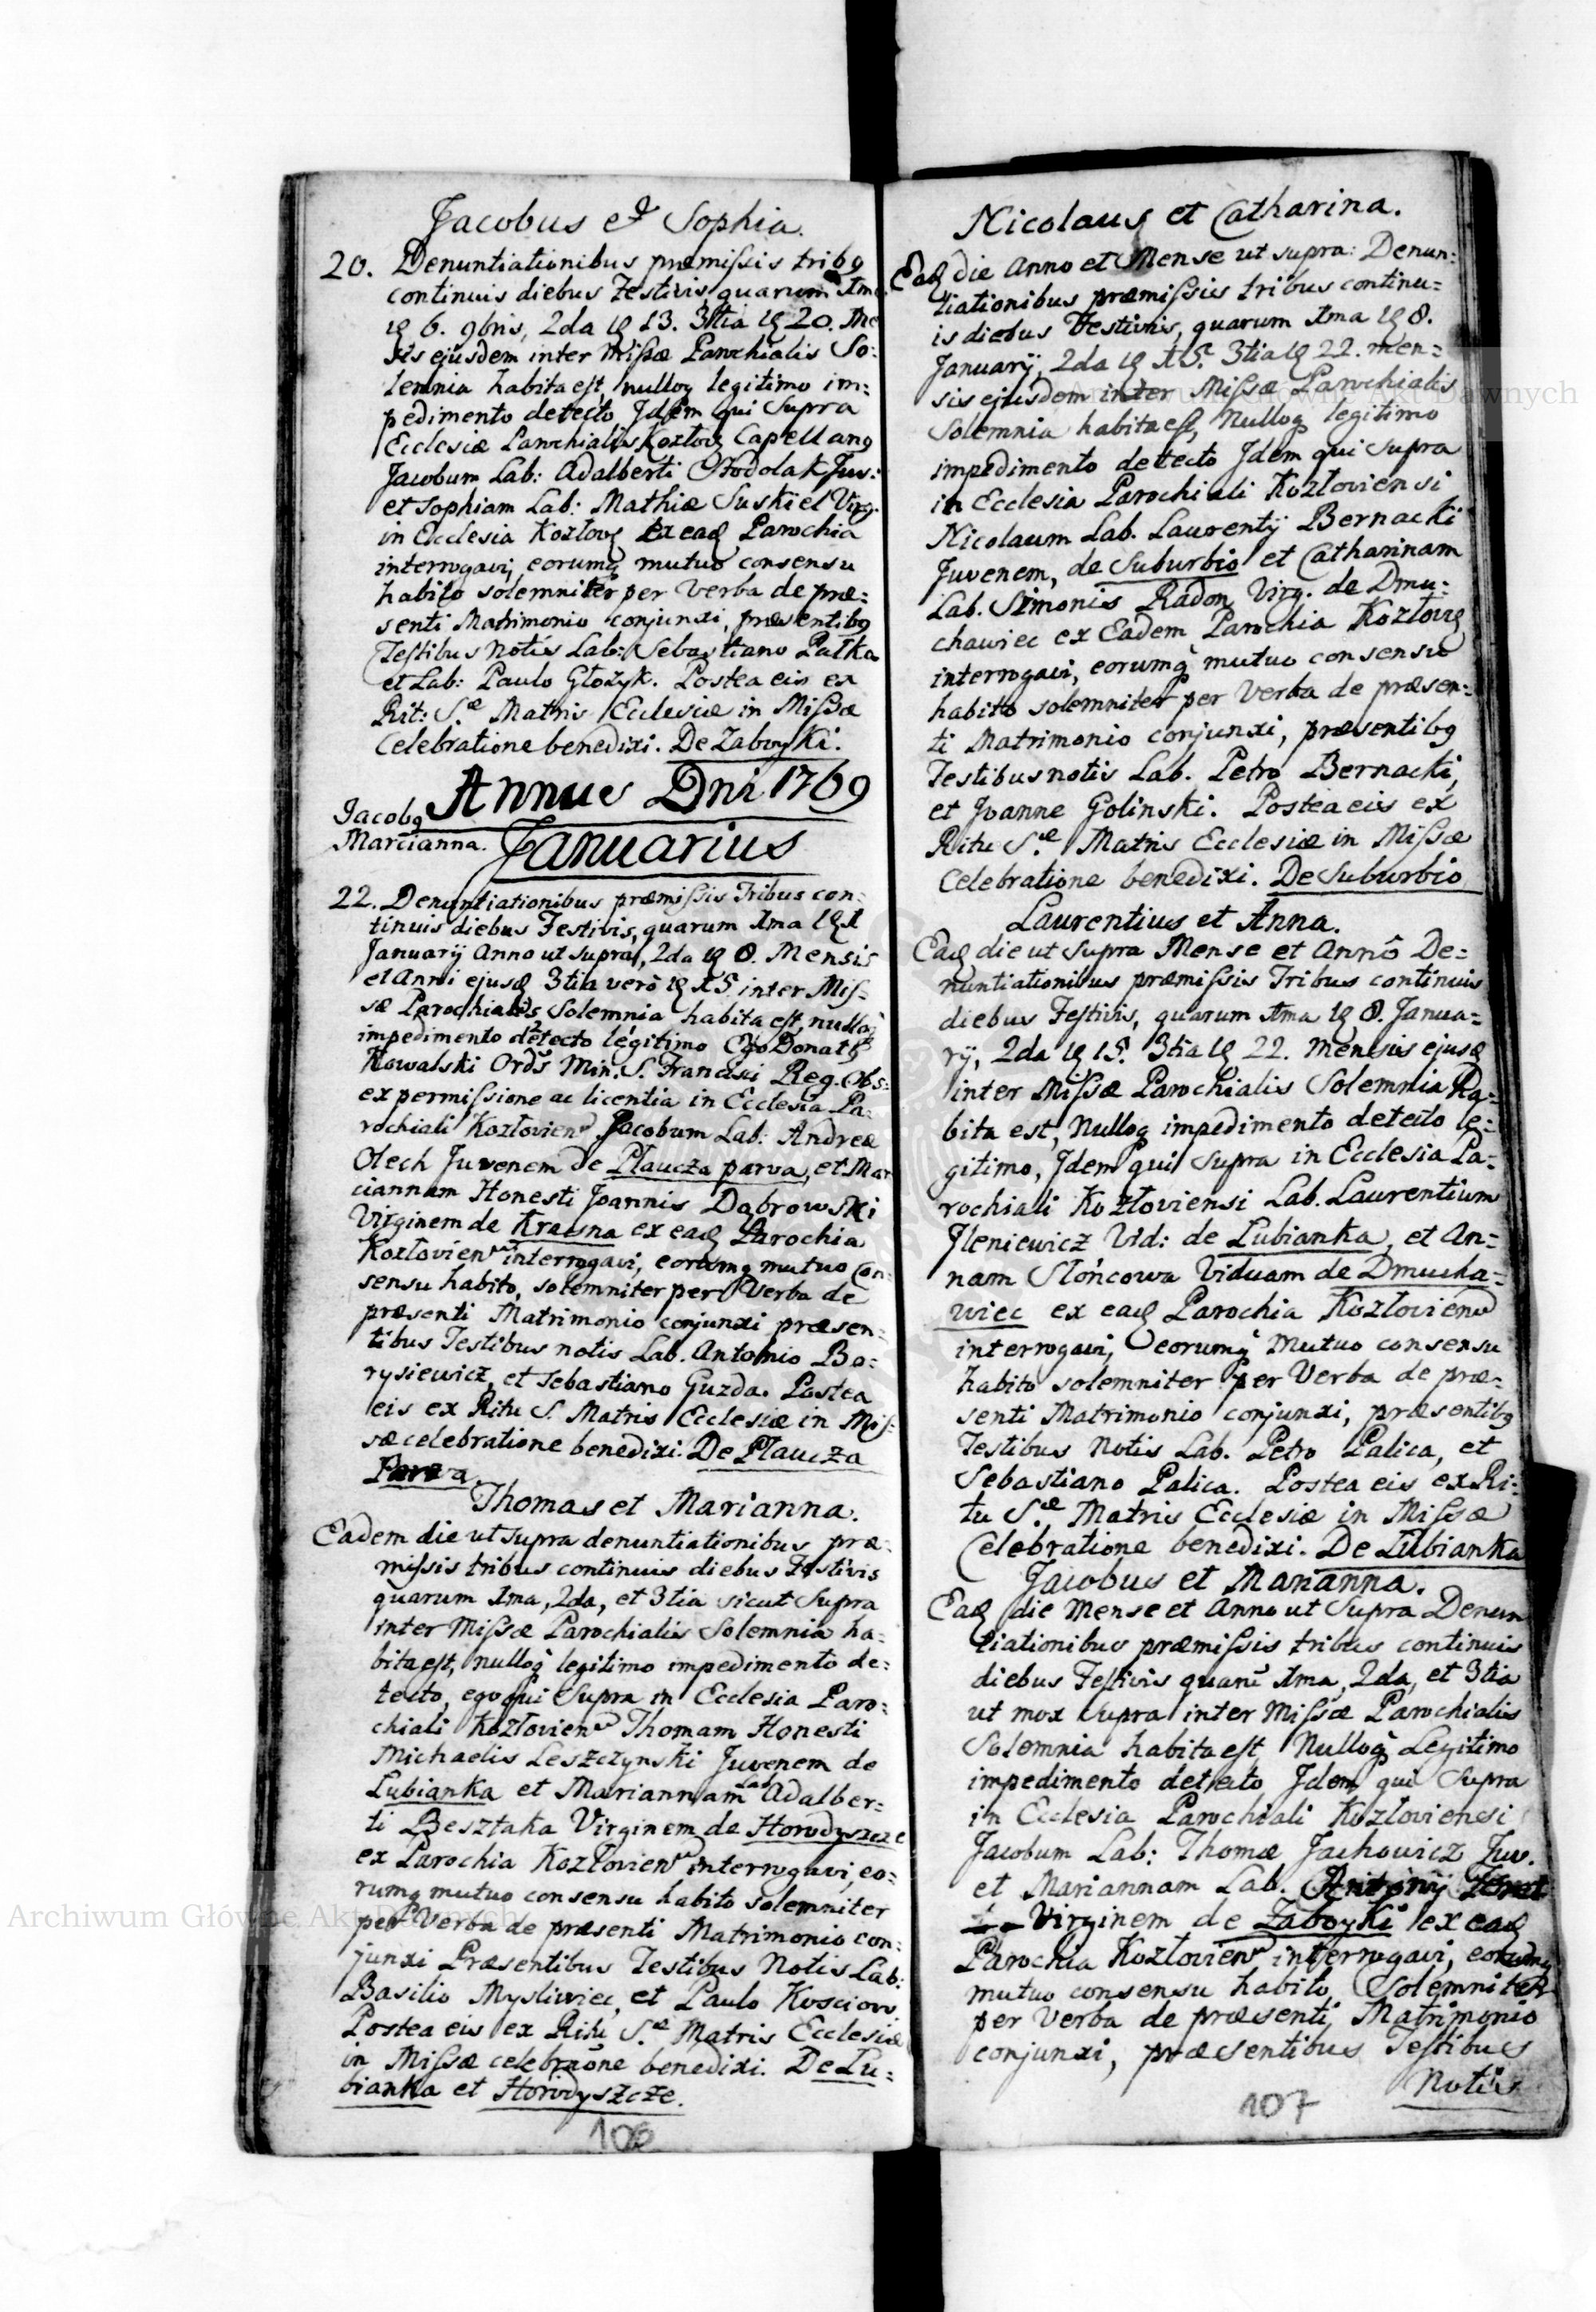 Jacobus et Sophia.
20. Denuntiationibus præmissis trib9
continuis diebus Festivis, quarum 1ma
6. 9bris, 2da 13. 3tia 20. Me
sis ejusdem inter Missæ Parochialis So=
lemnia habita est, nulloq legitimo im=
pedimento detecto Jdem qui Supra
Ecclesiæ Parochialis Kozłov Capellan9
Jacobum Lab: Adalberti Stodolak Juv:
et Sophiam Lab: Mathiæ Suskiel Virg.
in Ecclesia Kozłov ex ead Parochia
interrogavi, eorumq mutuo consensu
habito solemniter per verba de præ=
senti Matrimonio conjunxi, præsentib9
Testibus Notis Lab: Sebastiano Pałka
et Lab: Paulo Głozyk. Postea eis ex
Rit: S.æ Matris Ecclesiæ in Missæ
Celebratione benedixi. De Zaboyki.
Annus Dni 1769
Jacob9
Marcianna. Januarius
22. Denuntiationibus præmissis Tribus con=
tinuis diebus Festivis, quarum 1ma 1
Januarij Anno ut supra, 2da 8. Mensis
et Anni ejusd 3tia verò 15. inter Mis=
sæ Parochialis Solemnia habita est, nulloq
impedimento detecto légitimo Ego Donat9
Kowalski Ords Min. S. Francisci Reg. Obs=
ex permissione ac licentia in Ecclesia Pa=
rochiali Kozłovien Jacobum Lab: Andreæ
Olech Juvenem de Płaucza parva, et Mar
ciannam Honesti Joannis Dąbrowski
Virginem de Krasna ex ead Parochia
Kozłovien interrogavi, eorumq mutuo con=
sensu habito, solemniter per Verba de
præsenti Matrimonio conjunxi præsen=
tibus Testibus notis Lab. Antonio Bo=
rysiewicz, et Sebastiano Guzda. Postea
eis ex Ritu S. Matris Ecclesiæ in Mis=
sæ celebratione benedixi. De Płaucza
Parva.
Thomas et Marianna.
Eadem die ut supra denuntiationibus præ=
missis tribus continuis diebus Festivis
quarum 1ma, 2da, et 3tia sicut Supra
inter Missæ Parochialis Solemnia ha=
bita est, nulloq legitimo impedimento de=
tecto, ego qui Supra in Ecclesia Paro=
chiali Kozłovien Thomam Honesti
Michaelis Leszczynski Juvenem de
Lubianka et Mariannam Lab Adalber=
ti Besztaka Virginem de Horodyszcze
ex Parochia Kozłovien interrogavi, eo=
rumq mutuo consensu habito solemniter
per Verba de præsenti Matrimonio con=
junxi Præsentibus Testibus Notis Lab:
Basilio Mysliwiec, et Paulo Kosciow
Postea eis ex Ritu S.æ Matris Ecclesiæ
in Missæ celebraõne benedixi. De Lu=
bianka et Horodyszcze.
106
Nicolaus et Catharina.
Ead die Anno et Mense ut supra: Denun=
tiationibus præmissis tribus continu=
is diebus Festivis, quarum 1ma 8.
Januarij, 2da 15. 3tia 22. men=
sis ejusdem inter Missæ Parochialis
Solemnia habita est, Nulloq legitimo
impedimento detecto Jdem qui Supra
in Ecclesia Parochiali Kozłoviensi
Nicolaum Lab. Laurentij Bernacki
Juvenem, de Suburbio et Catharinam
Lab. Simonis Radon Virg. de Dmu=
chawiec ex Eadem Parochia Kozłov
interrogavi, eorumq mutuo consensu
habito solemniter per Verba de præsen=
ti Matrimonio conjunxi, præsentib9
Testibus notis Lab. Petro Bernacki,
et Joanne Golinski. Postea eis ex
Ritu S.æ Matris Ecclesiæ in Missæ
Celebratione benedixi. De Suburbio
Laurentius et Anna.
Ead die ut supra Mense et Annô De=
nuntiationibus præmissis Tribus continuis
diebus Festivis, quarum 1ma 8. Janua=
rij, 2da 15. 3tia 22. Mensis ejusd
inter Missæ Parochialis Solemnia ha=
bita est, Nulloq impedimento detecto le=
gitimo, Jdem qui Supra in Ecclesia Pa=
rochiali Kozłoviensi Lab. Laurentium
Jleniewicz Vid: de Lubianka, et An=
nam Słońcowa Viduam de Dmucha=
wiec ex ead Parochia Kozłovien
interrogavi, eorumq Mutuo consensu
habito solemniter per Verba de præ=
senti Matrimonio conjunxi, præsentib9
Testibus Notis Lab. Petro Palica, et
Sebastiano Palica. Postea eis ex Ri=
tu S.æ Matris Ecclesiæ in Missæ
Celebratione benedixi. De Lubianka
Jacobus et Marianna.
Ead die Mense et Anno ut Supra Denun
tiationibus præmissis tribus continuis
diebus Festivis quarũ 1ma, 2da, et 3tia
ut mox supra inter Missæ Parochialis
Solemnia habita est, Nulloq Legitimo
impedimento detecto Jdem qui Supra
in Ecclesia Parochiali Kozłoviensi
Jacobum Lab: Thomæ Jachowicz Juv.
et Mariannam Lab. Antonij
Virginem de Zaboyki ex ead
Parochia Kozłovien interrogavi, eorumq
mutuo consensu habito, Solemniter
per Verba de præsenti Matrimonio
conjunxi, præsentibus Testibus
Notis
107
Archiwum Główne Akt Dawnych
Archiwum Główne Akt Dawnych